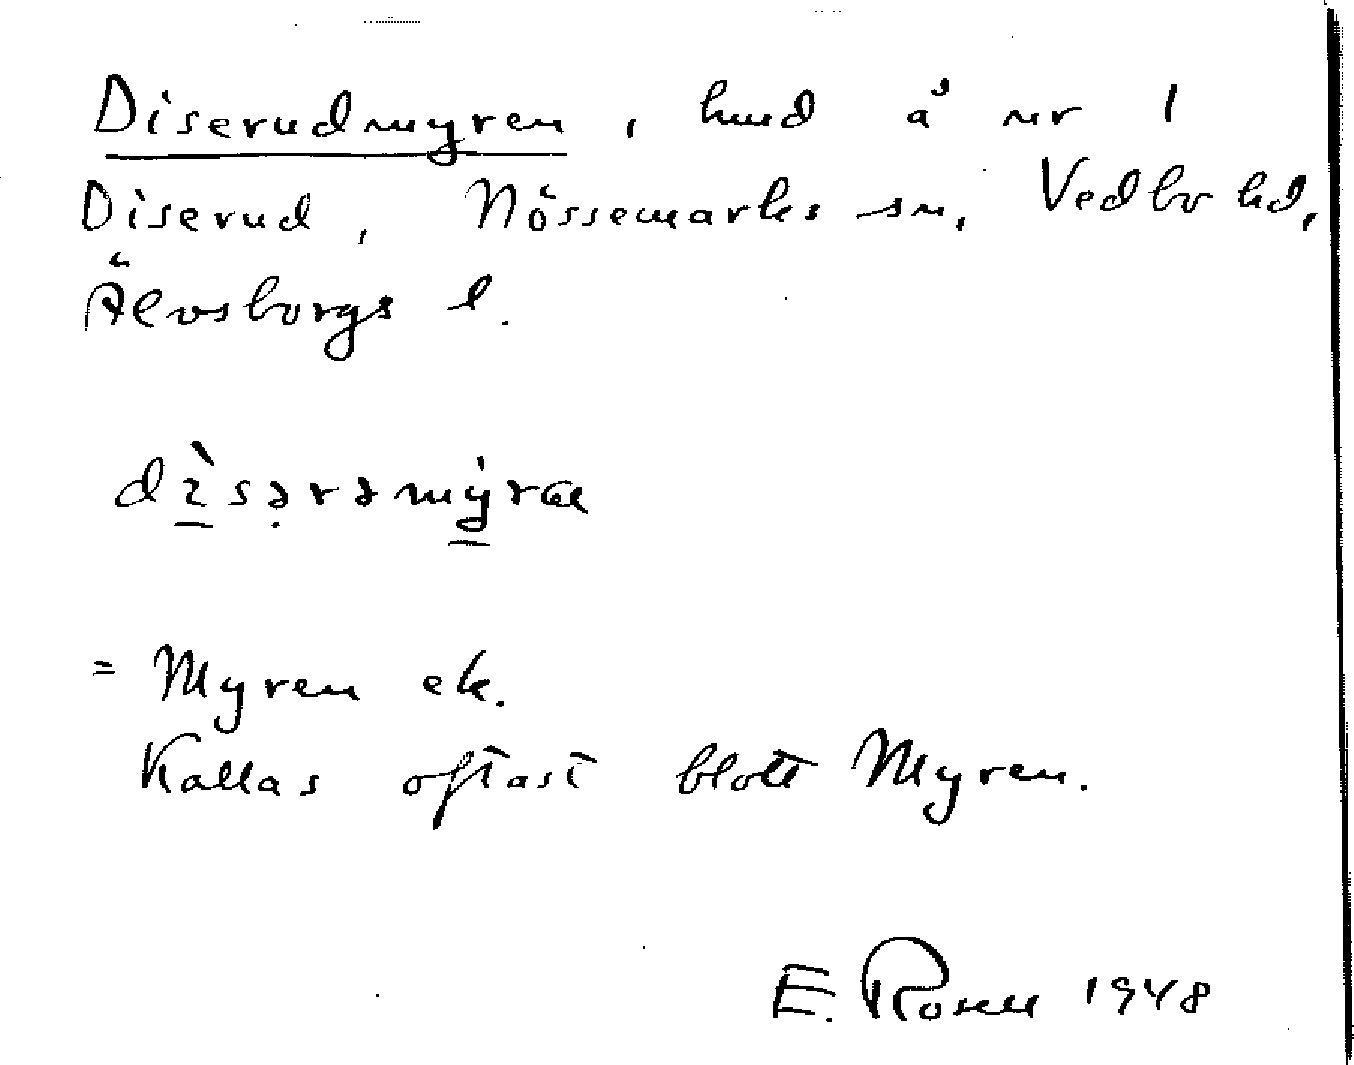 Diserudmyren, hmd å nr 1
Diserud, Nössemarks sn, Vedbo hd,
Älvsborgs l.
dìsərəmýræ
= Myren ek.
Kallas oftast blott Myren.
E. Rosell 1948